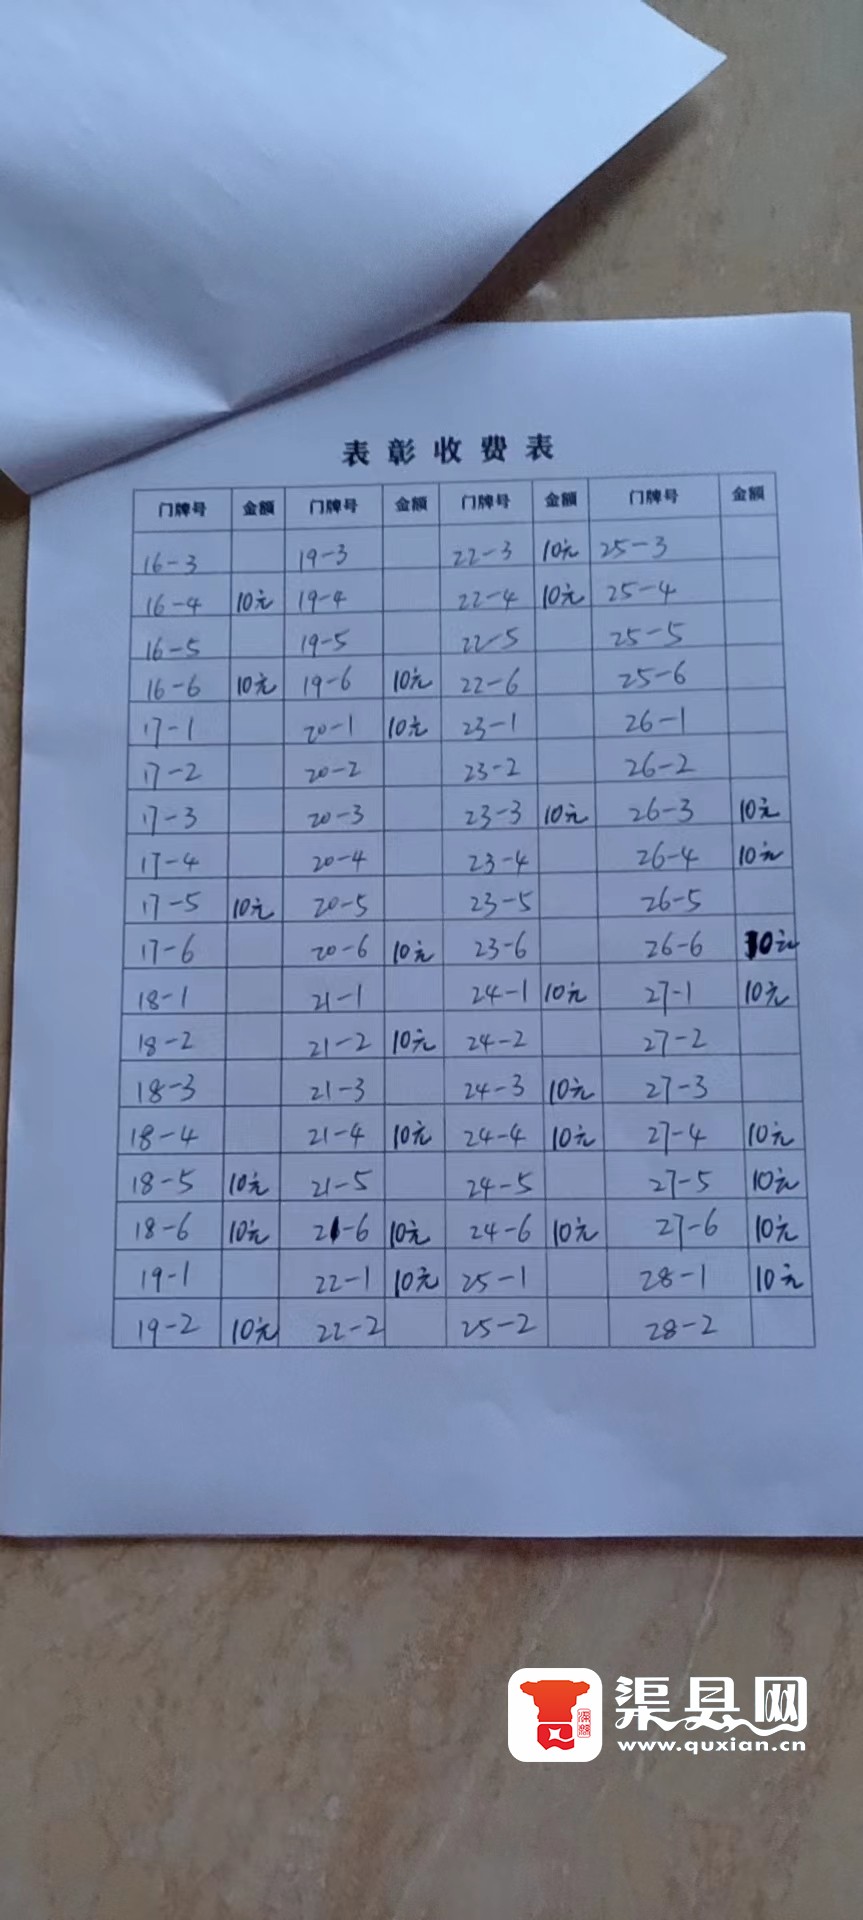 表彰收费表
门牌号 金额 门牌号 金额 门牌号 金额 门牌号 金额
16-3 19-3 22-3 10元 25-3
16-4 10元 19-4 22-4 10元 25-4
16-5 19-5 22-5 25-5
16-6 10元 19-6 10元 22-6 25-6
17-1 20-1 10元 23-1 26-1
17-2 20-2 23-2 26-2
17-3 20-3 23-3 10元 26-3 10元
17-4 20-4 23-4 26-4 10元
17-5 10元 20-5 23-5 26-5
17-6 20-6 10元 23-6 26-6 10元
18-1 21-1 24-1 10元 27-1 10元
18-2 21-2 10元 24-2 27-2
18-3 21-3 24-3 10元 27-3
18-4 21-4 10元 24-4 10元 27-4 10元
18-5 10元 21-5 24-5 27-5 10元
18-6 10元 21-6 10元 24-6 10元 27-6 10元
19-1 22-1 10元 25-1 28-1 10元
19-2 10元 22-2 25-2 28-2
渠县网
www.quxian.cn